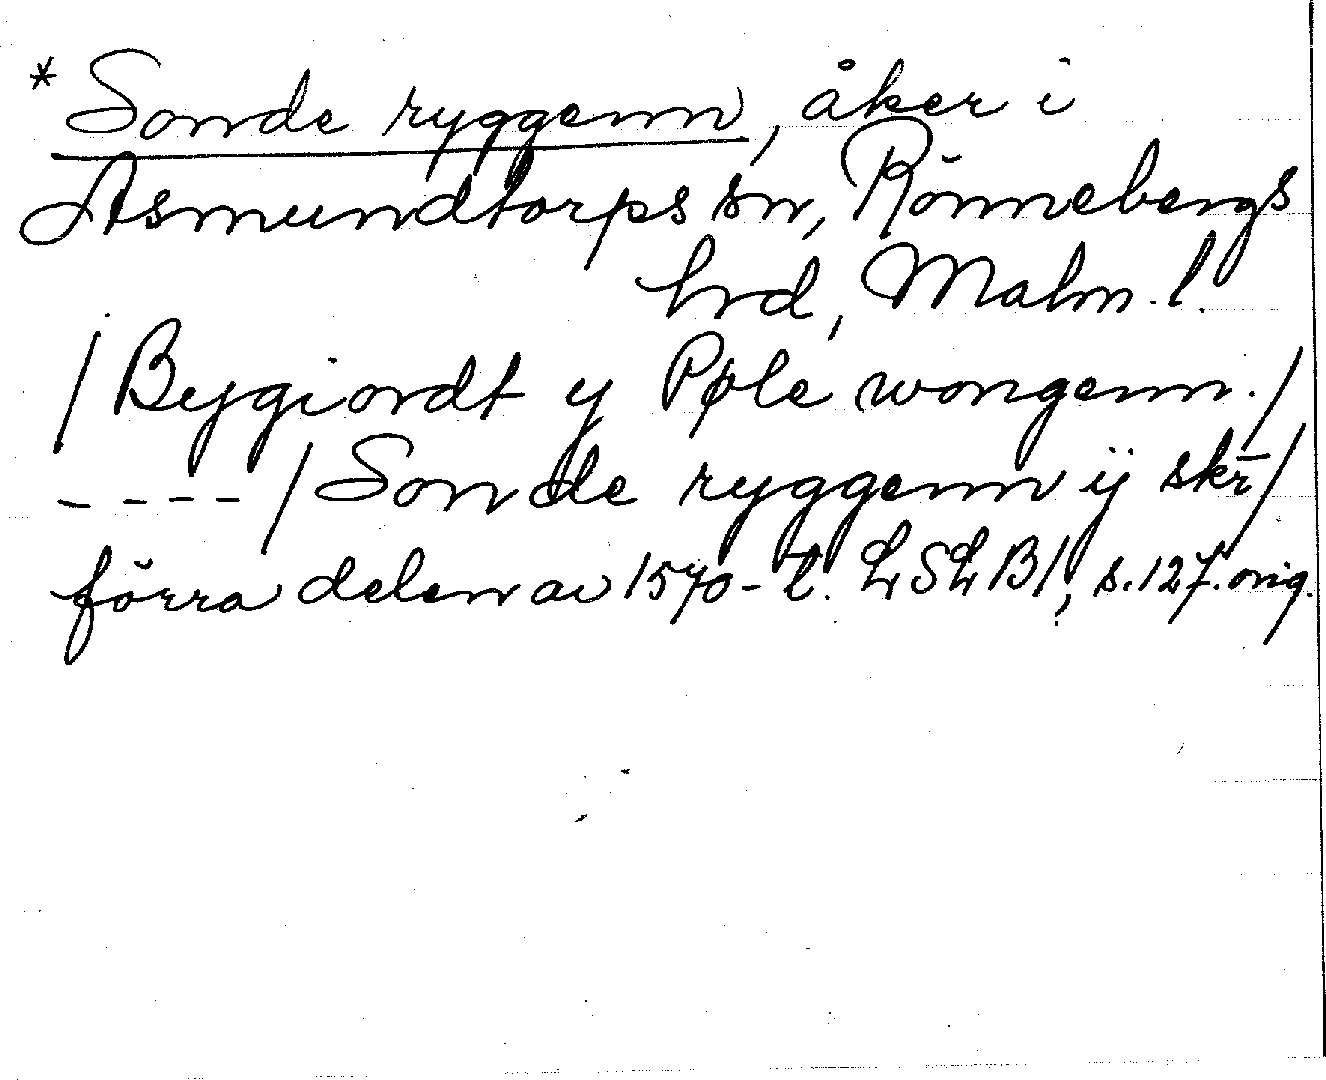 * Sonde ryggenn, åker i
Asmundtorps sn, Rönnebergs
hrd, Malm. l.
/ Bygiordt y Pøle wongenn. /
---- / Sonde ryggenn ij skr̄ /
förra delen av 1570-t. LSLB1, s. 127. orig.